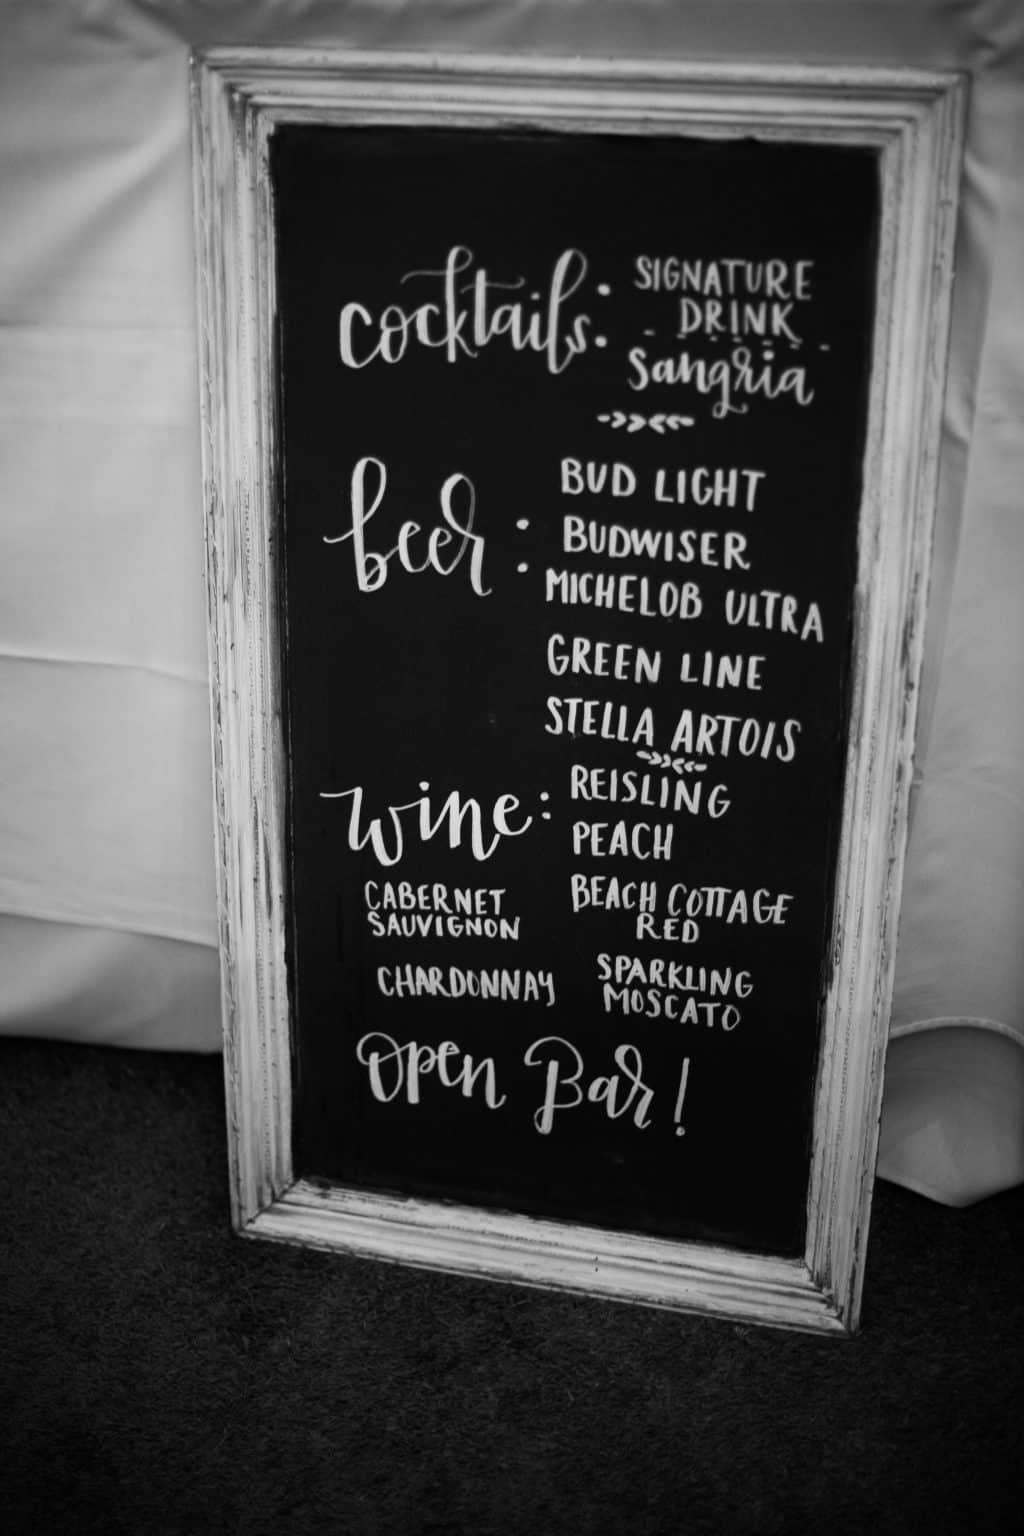 cocktails: SIGNATURE
DRINK
Sangria
beer: BUD LIGHT
BUDWISER
MICHELOB ULTRA
GREEN LINE
STELLA ARTOIS
wine: REISLING
PEACH
CABERNET
SAUVIGNON
BEACH COTTAGE
RED
CHARDONNAY
SPARKLING
MOSCATO
Open Bar!